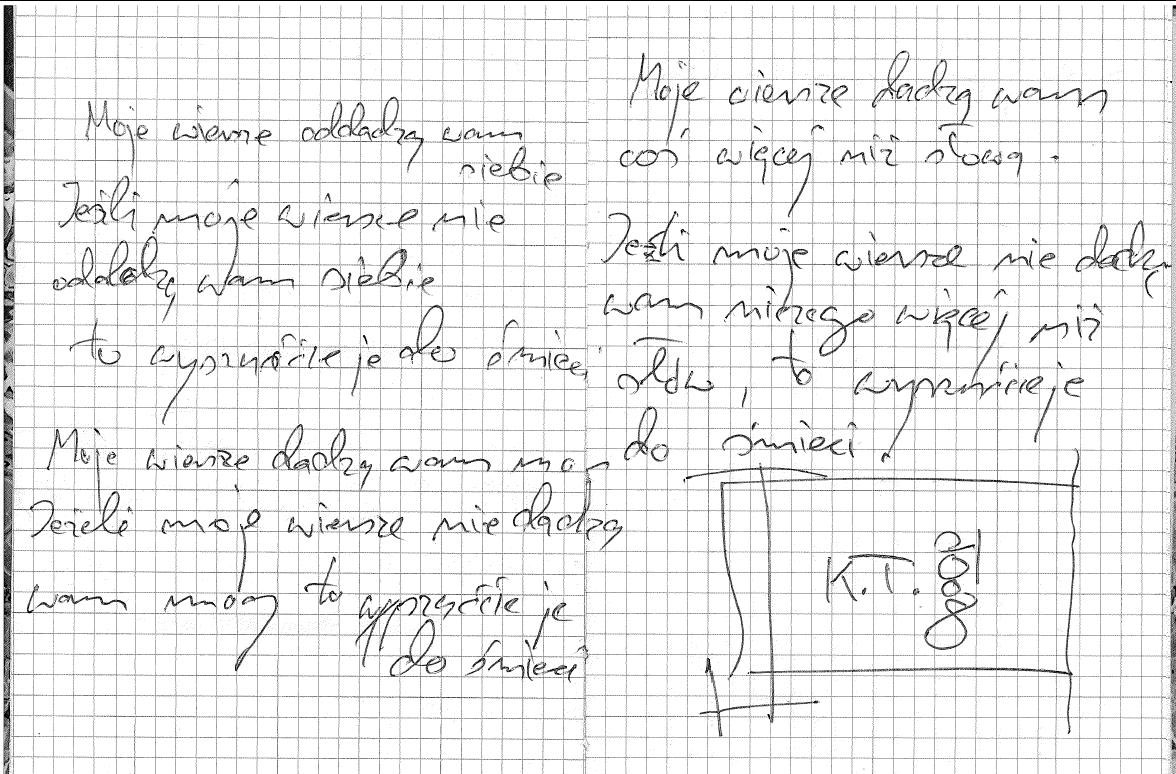 Moje wiersze oddadzą wam
siebie
Jeśli moje wiersze nie
oddadzą wam siebie
to wyrzućcie je do śmieci
Moje wiersze dadzą wam mo
Jeżeli moje wiersze nie dadzą
wam mocy to wyrzućcie je
do śmieci
Moje wiersze dadzą wam
coś więcej niż słowa.
Jeśli moje wiersze nie dadzą
wam niczego więcej niż
słów, to wyrzućcie je
do śmieci.
K.T. 2008